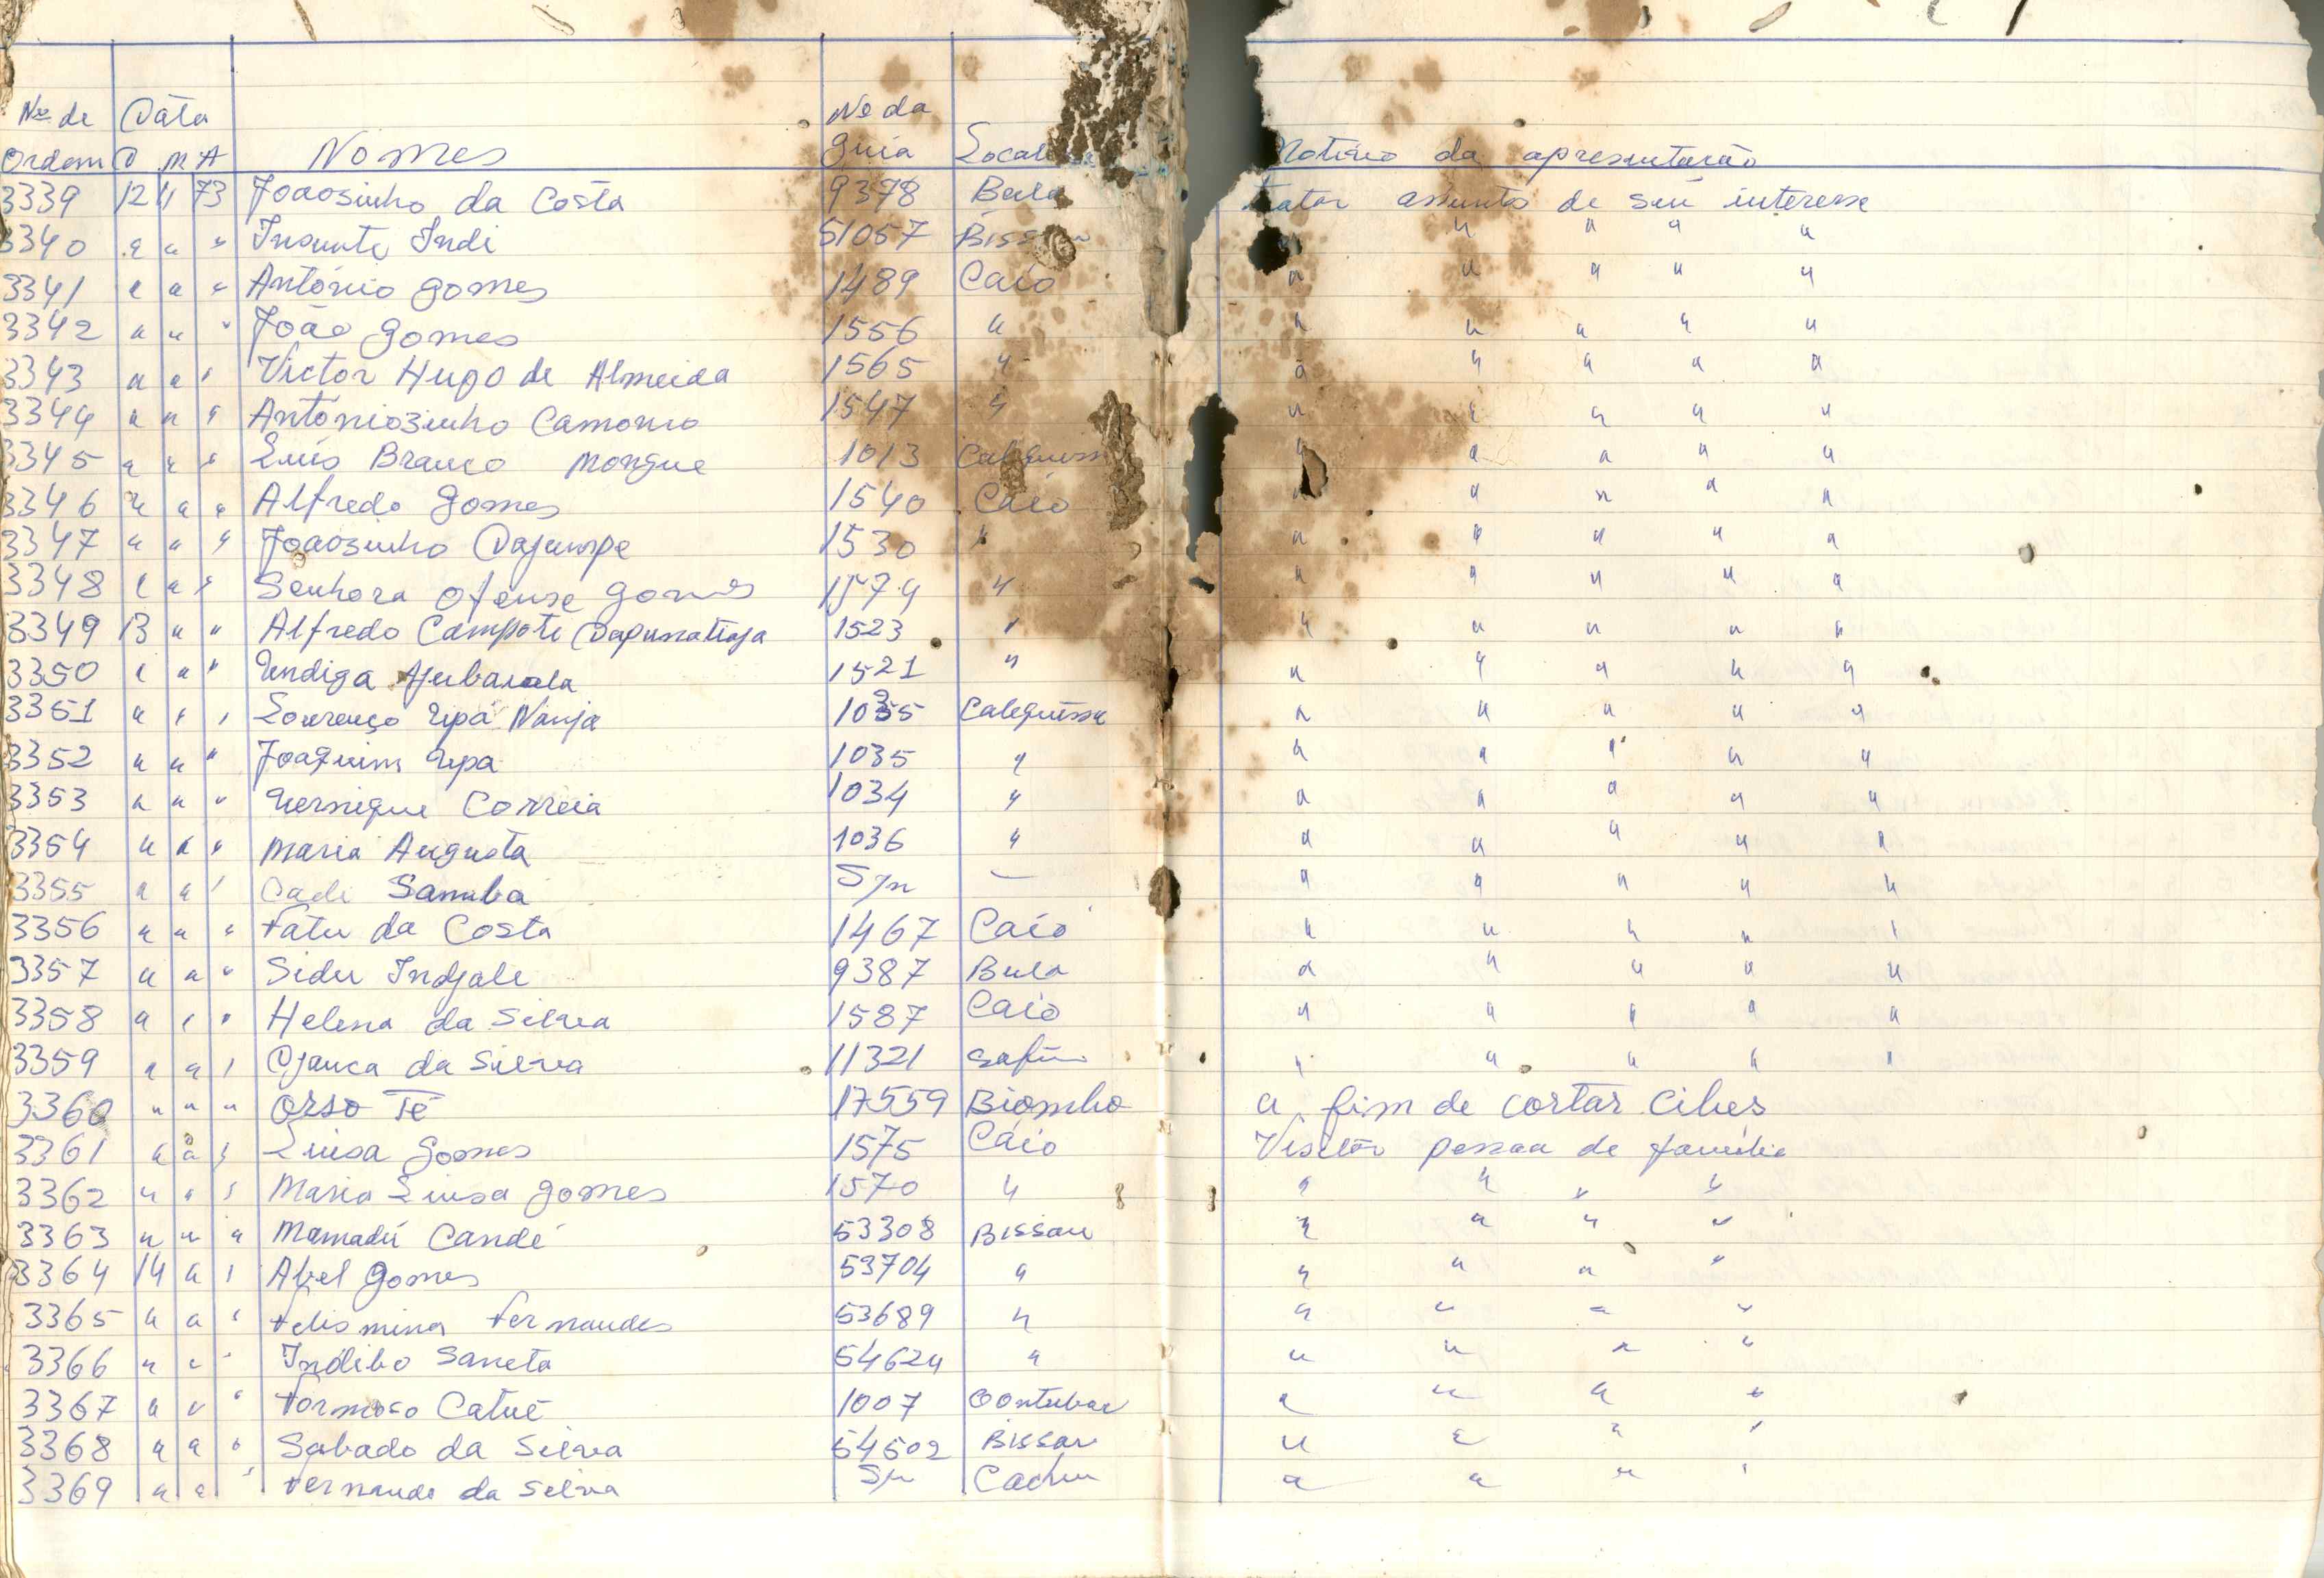 Nº de Data Nº da
Ordem D M A Nomes Guia Local Motivo da apresentação
3339 12 11 73 Joaosinho da Costa 9378 Bula tratar assuntos de seu interesse
3340 " " " Insunte Indi 51057 Bissau " " " " "
3341 " " " António Gomes 1489 Caió " " " " "
3342 " " " João Gomes 1556 " " " " " "
3343 " " " Victor Hugo de Almeida 1565 " " " " " "
3344 " " " Antóniozinho Camorno 1547 " " " " " "
3345 " " " Luís Branco Mongue 1013 " " " " "
3346 " " " Alfredo Gomes 1540 Caió " " " " "
3347 " " " Joaozinho Dajumpe 1530 " " " " " "
3348 " " " Senhora Ofense Gomes 1579 " " " " " "
3349 13 " " Alfredo Campote 1523 " " " " " "
3350 " " " Undiga 1521 " " " " " "
3351 " " " Lourenço Upa Nanja 1035 Calequisse " " " " "
3352 " " " Joaquim Upa 1035 " " " " " "
3353 " " " Hernique Correia 1034 " " " " " "
3354 " " " Maria Augusta 1036 " " " " " "
3355 " " " Cadi Samba S/n — " " " " "
3356 " " " Fatu da Costa 1467 Caió " " " " "
3357 " " " Sidu Indjale 9387 Bula " " " " "
3358 " " " Helena da Silva 1587 Caió " " " " "
3359 " " " Djanca da Silva 11321 Safim " " " " "
3360 " " " Orso Té 17559 Biombo a fim de cortar Cibes
3361 " " " Luisa Gomes 1575 Caió Visitar pessoa de familia
3362 " " " Maria Luisa Gomes 1570 " " " " "
3363 " " " Mamadú Candé 53308 Bissau " " " "
3364 14 " " Abel Gomes 53704 " " " " "
3365 " " " Felismina Fernandes 53689 " " " " "
3366 " " " Indibo Saneta 54624 " " " " "
3367 " " " Formoso Catué 1007 Contubue " " " "
3368 " " " Sabado da Silva 54502 Bissau " " " "
3369 " " " Fernando da Silva S/n Cacheu " " " "